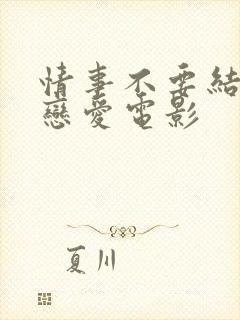 情事不要結
戀愛電影
夏川